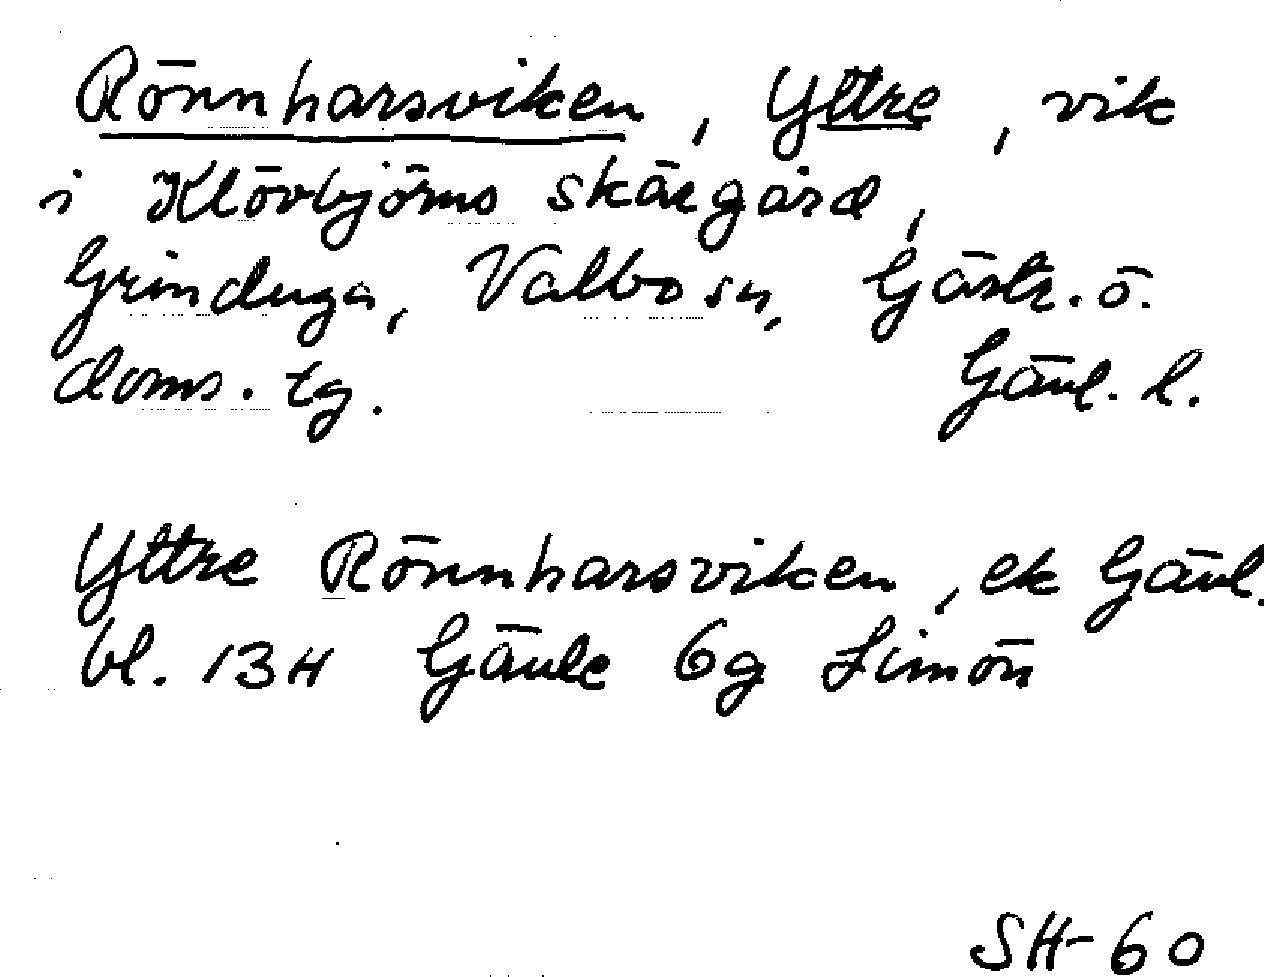 Rönnharsviken, Yttre, vik
i Klövbjörns skärgård,
Grinduga, Valbo sn, Gästr. ö.
doms. tg. Gävl. l.
Yttre Rönnharsviken, ek Gävl.
bl. 13H Gävle 6g Limön
SH-60